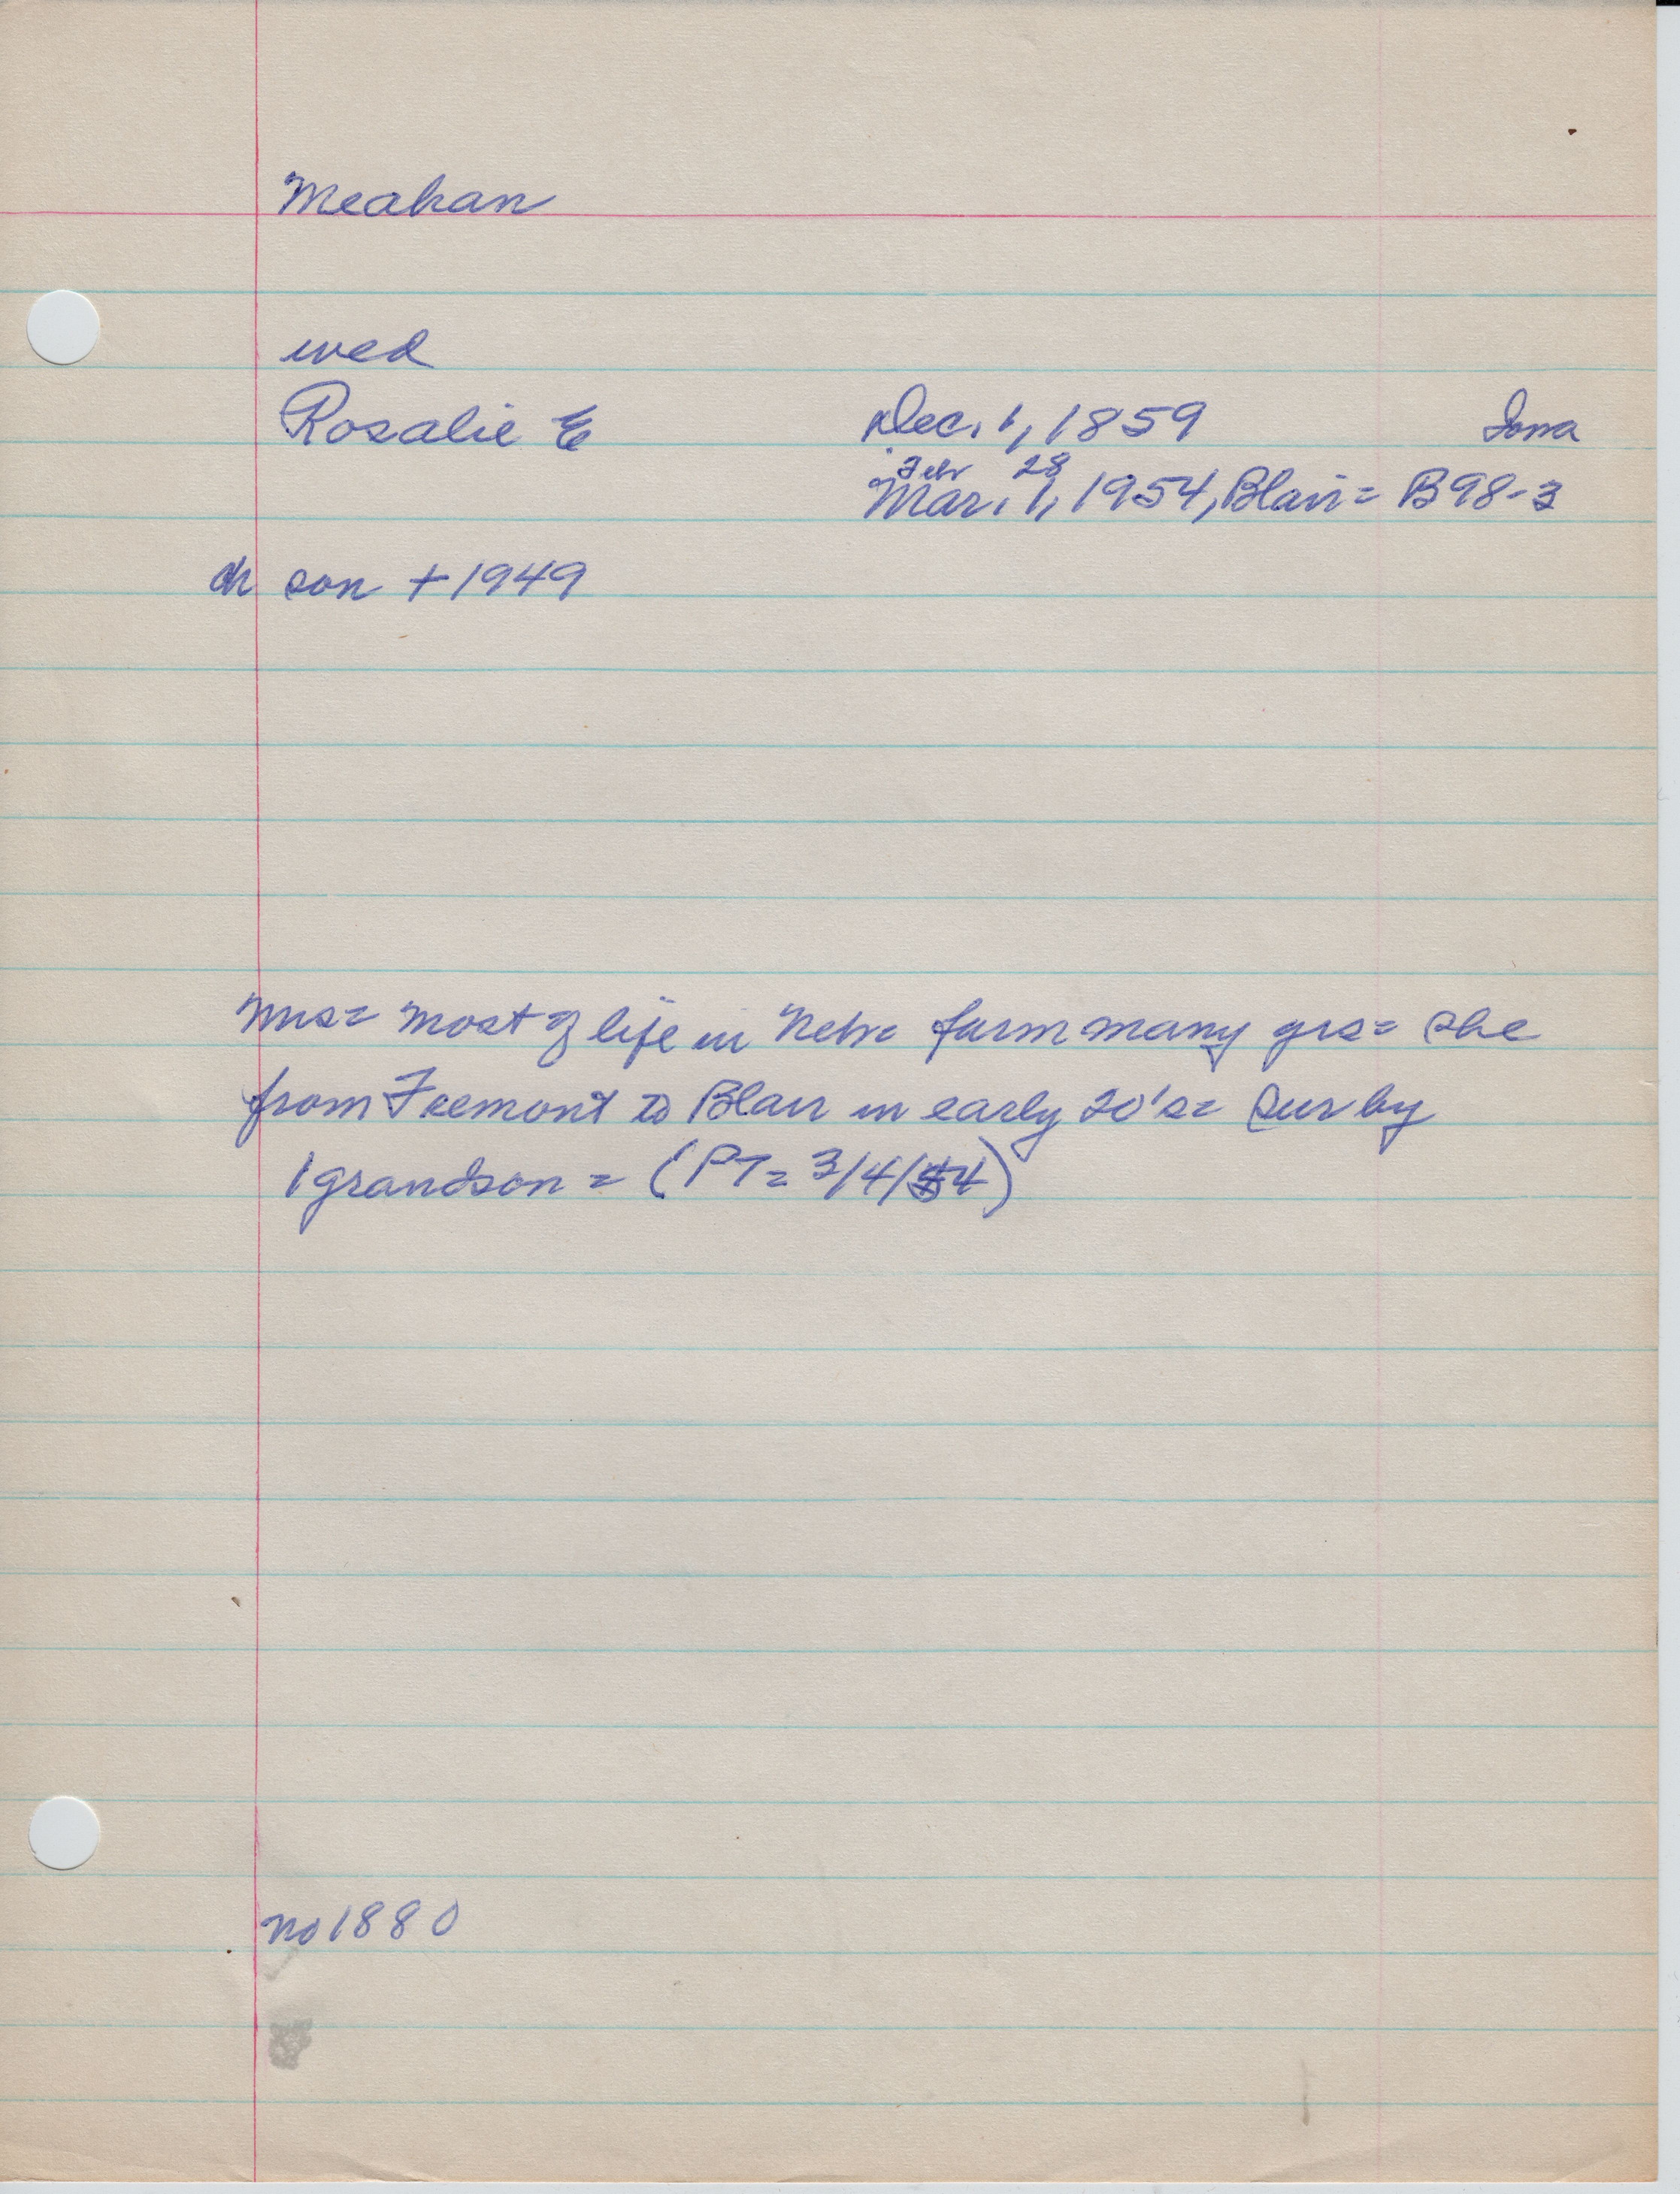 Meahan
wed
Rosalie E Dec. 1, 1859 Iowa
Febr 28
Mar. 1, 1954, Blair = B98-3
ch son + 1949
Mrs = most of life in Nebr = farm many yrs = she
from Fremont to Blair in early 20's = sur by
1 grandson = (PT = 3/4/54)
no 1880